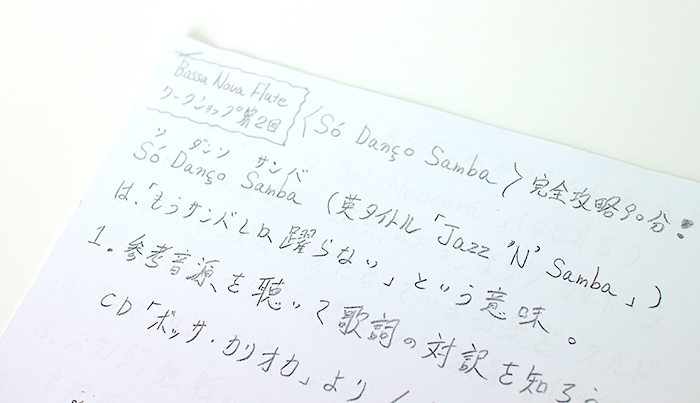 Bassa Nova Flute
ワークショップ第2回
〈Só Danço Samba〉完全攻略90分!
ソ ダンソ サンバ
Só Danço Samba (英タイトル「Jazz 'N' Samba」)
は、「もうサンバしか躍らない」という意味。
1. 参考音源を聴いて歌詞の対訳を知ろう
CD「ボッサ・カリオカ」より